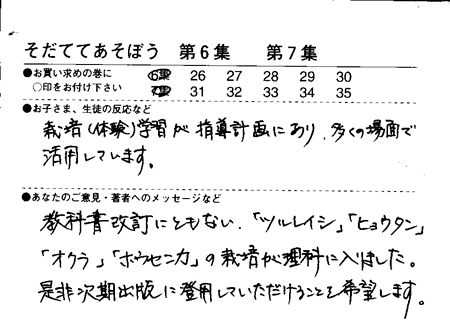 そだててあそぼう 第6集 第7集
●お買い求めの巻に 6集 26 27 28 29 30
○印をお付け下さい 7集 31 32 33 34 35
●お子さま、生徒の反応など
栽培(体験)学習が指導計画にあり、多くの場面で
活用しています。
●あなたのご意見・著者へのメッセージなど
教科書改訂にともない、「ツルレイシ」「ヒョウタン」
「オクラ」「ホウセンカ」の栽培が理科に入りました。
是非次期出版に登用していただけることを希望します。